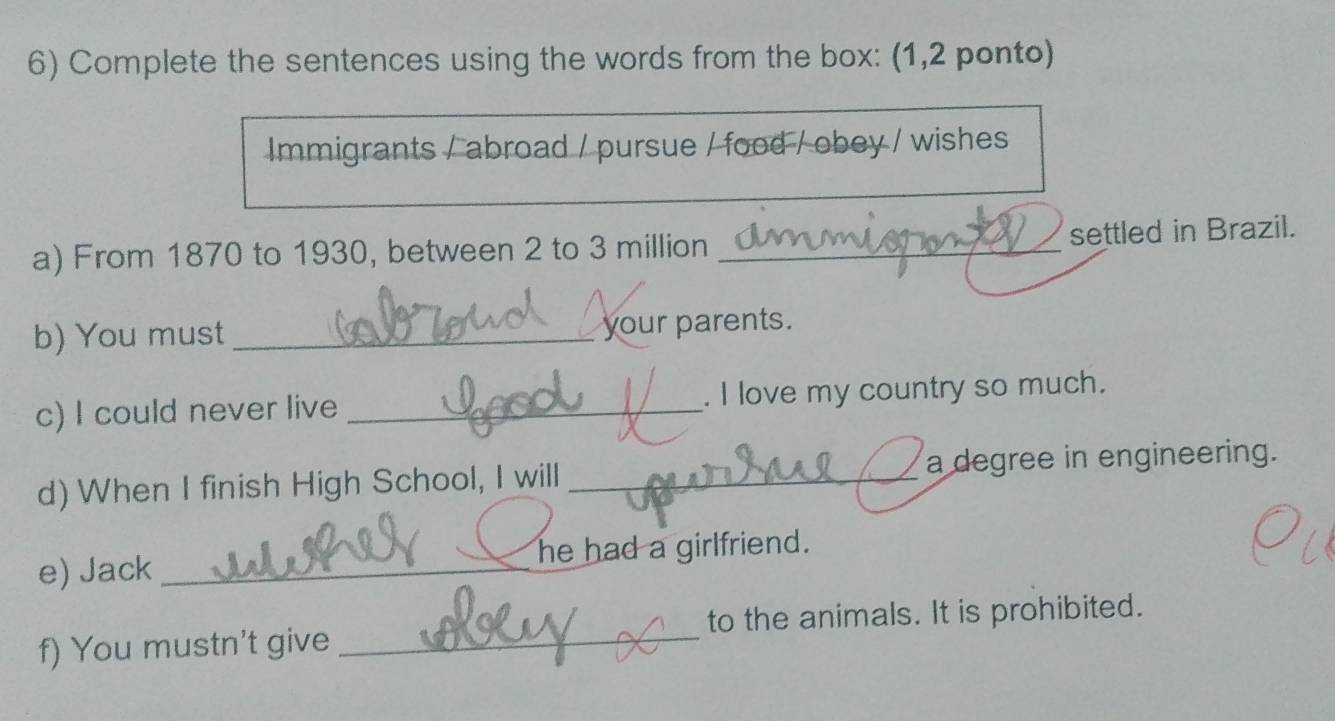 6) Complete the sentences using the words from the box: (1,2 ponto)
Immigrants / abroad / pursue / food / obey / wishes
a) From 1870 to 1930, between 2 to 3 million immigrants settled in Brazil.
b) You must abroad your parents.
c) I could never live food. I love my country so much.
d) When I finish High School, I will pursue a degree in engineering.
e) Jack wishes he had a girlfriend.
f) You mustn't give obey to the animals. It is prohibited.